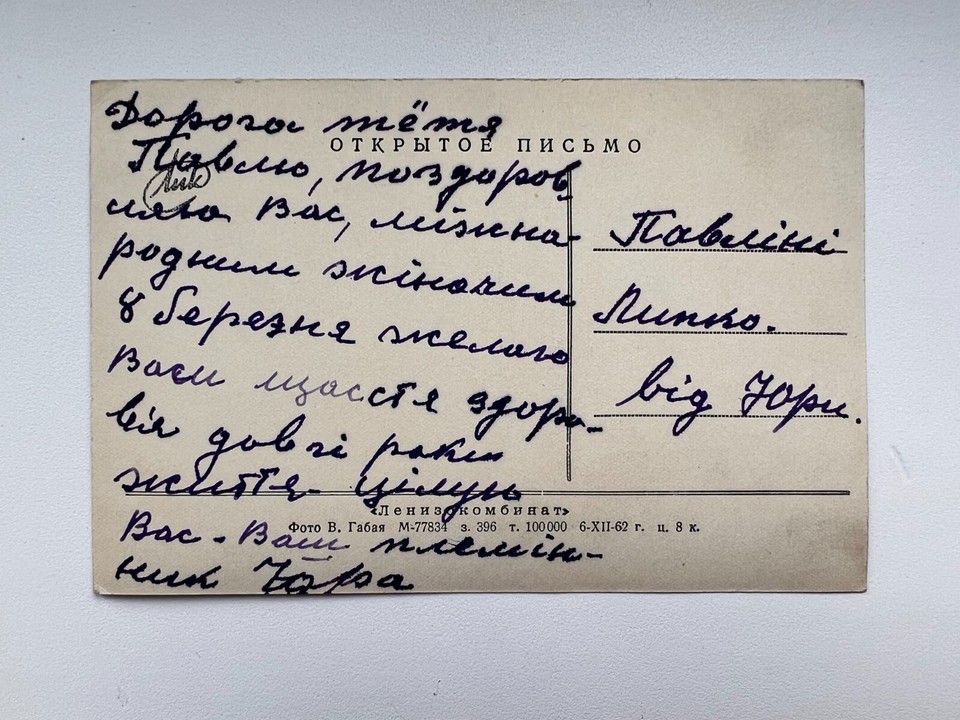 Дорога тётя
ОТКРЫТОЕ ПИСЬМО
Павлю, поздоров
ляю Вас, міжна-
родним жіночим
8 березня желаю
Вам щастя здоро-
вія довгі роки
життя- цілую
Вас - Ваш племін-
ник Юра
Павліні
Липко.
від Юри.
«Ленизокомбинат»
Фото В. Габая М-77834 з. 396 т. 100000 6-XII-62 г. ц. 8 к.